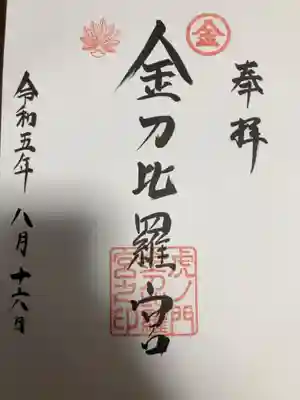 奉拝
金
金刀比羅宮
虎ノ門
金刀比羅
宮之印
令和五年 八月 十六日